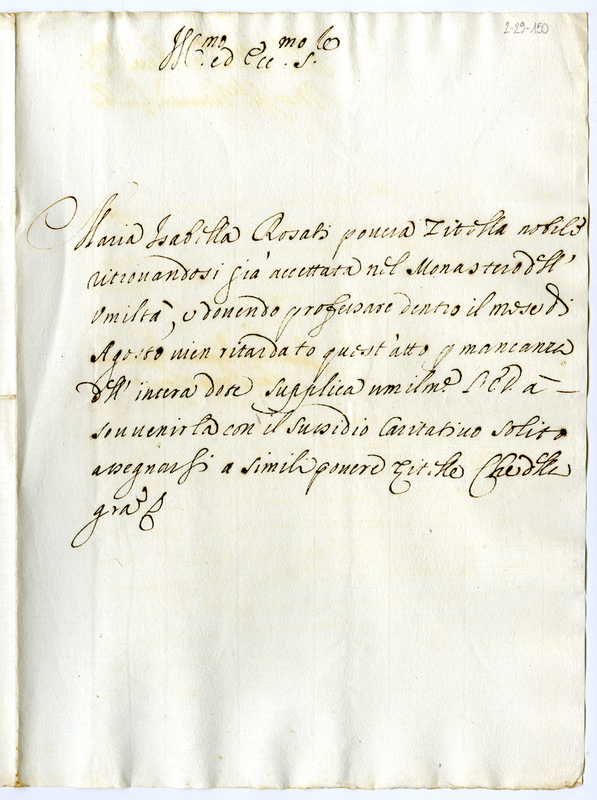 2-29-150
Ill.mo ed Ecc.mo S.re
Maria Isabella Rosati povera Zitella nobile
ritrovandosi già accettata nel Monastero dell'
Umiltà, e dovendo professare dentro il mese di
Agosto vien ritardato quest'atto p mancanza
dell' intera dote supplica umilm.e l'E.V. à
sovvenirla con il sussidio Caritativo solito
assegnarsi a simili povere Zitelle Che della
gra.